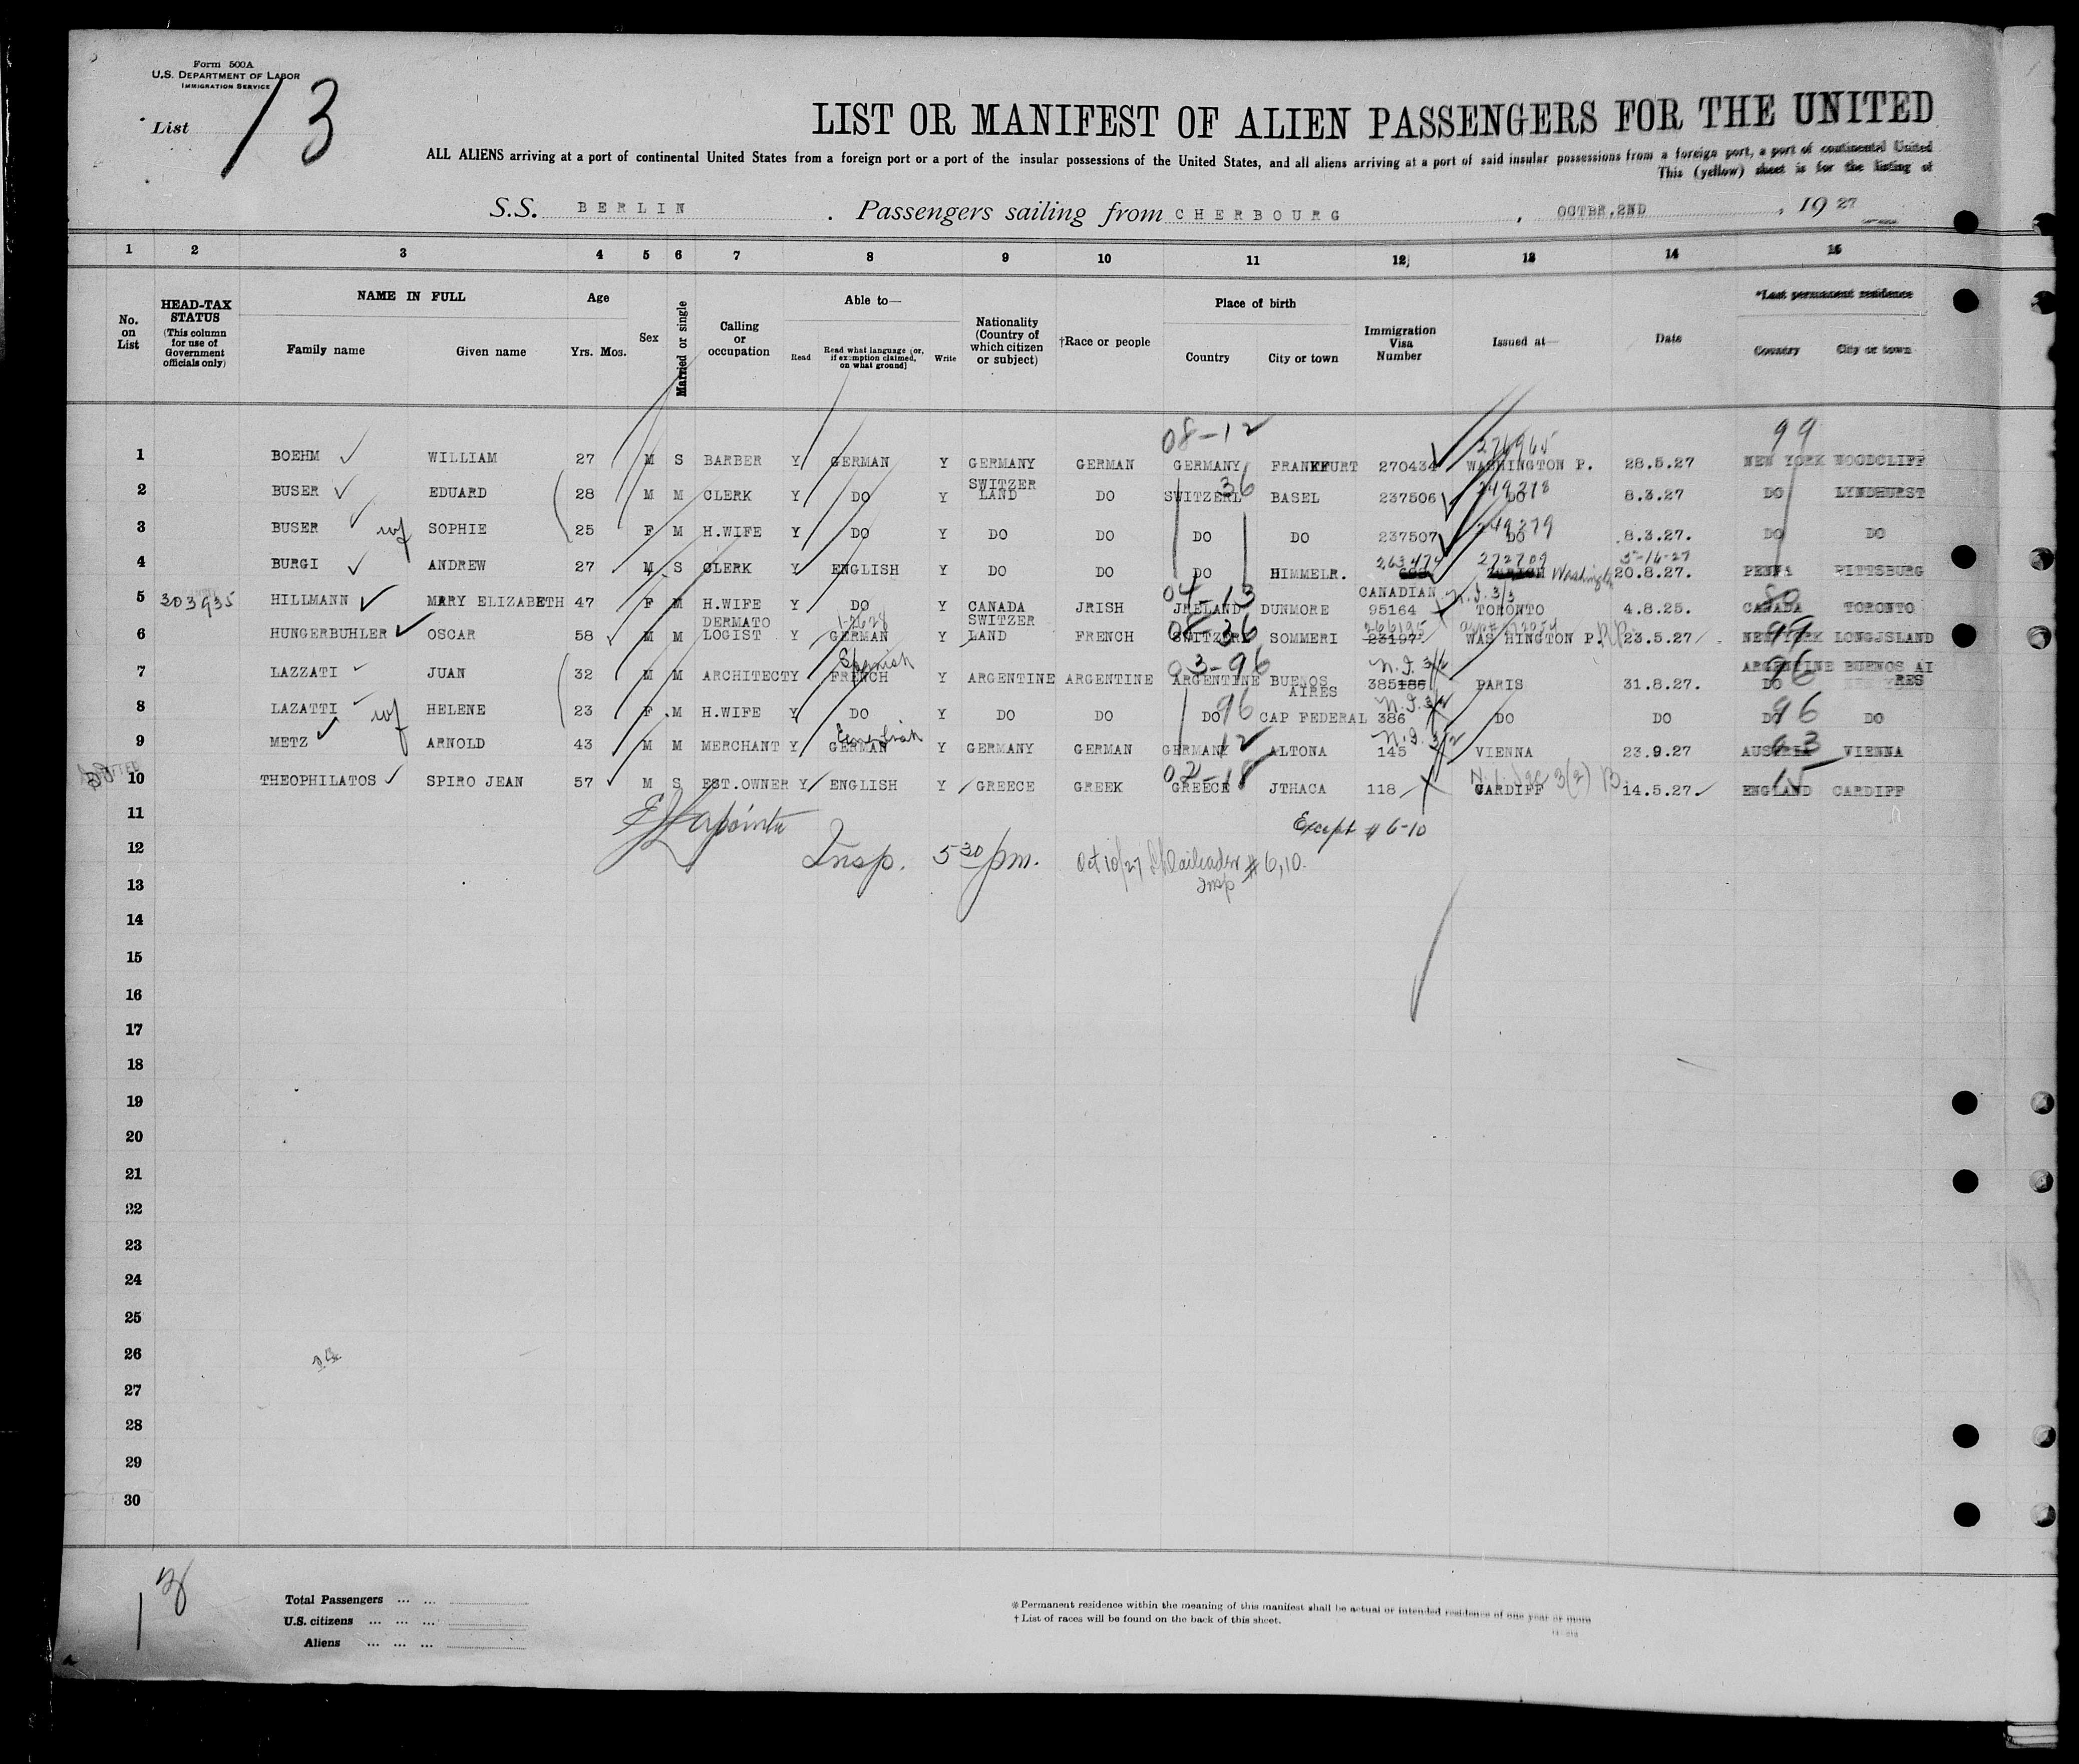 Form 500A
U.S. DEPARTMENT OF LABOR
IMMIGRATION SERVICE
List 13
LIST OR MANIFEST OF ALIEN PASSENGERS FOR THE UNITED
ALL ALIENS arriving at a port of continental United States from a foreign port or a port of the insular possessions of the United States, and all aliens arriving at a port of said insular possessions from a foreign port, a port of continental United
This (yellow) sheet is for the listing of
S.S. BERLIN . Passengers sailing from CHERBOURG , OCTBR.2ND , 19 27
1 2 3 4 5 6 7 8 9 10 11 12 13 14 15
No. on List
HEAD-TAX STATUS (This column for use of Government officials only)
NAME IN FULL
Family name Given name
Age
Yrs. Mos.
Sex
Married or single
Calling or occupation
Able to—
Read
Read what language [or, if exemption claimed, on what ground]
Write
Nationality (Country of which citizen or subject)
†Race or people
Place of birth
Country City or town
Immigration Visa Number
Issued at—
Date
*Last permanent residence
Country City or town
08-12 276965 99
1 BOEHM WILLIAM 27 M S BARBER Y GERMAN Y GERMANY GERMAN GERMANY FRANKFURT 270434 WASHINGTON P. 28.5.27 NEW YORK WOODCLIFF
36 249278
2 BUSER EDUARD 28 M M CLERK Y DO Y SWITZER LAND DO SWITZERL BASEL 237506 DO 8.3.27 DO LYNDHURST
249279
3 BUSER wf SOPHIE 25 F M H.WIFE Y DO Y DO DO DO DO 237507 DO 8.3.27. DO DO
263474 272709 5-16-27
4 BURGI ANDREW 27 M S CLERK Y ENGLISH Y DO DO DO HIMMELR. Washington 20.8.27. PENNA PITTSBURG
04-13 CANADIAN N.I. 3/3 80
5 303935 HILLMANN MARY ELIZABETH 47 F M H.WIFE Y DO Y CANADA JRISH JRELAND DUNMORE 95164 TORONTO 4.8.25. CANADA TORONTO
1-2628 08-36 266195 99
6 HUNGERBUHLER OSCAR 58 M M DERMATO LOGIST Y GERMAN Y SWITZER LAND FRENCH SWITZERL SOMMERI 23197 WAS HINGTON P. 23.5.27 NEW YORK LONGJSLAND
Spanish 03-96 N.I. 3/2 96
7 LAZZATI JUAN 32 M M ARCHITECT Y FRENCH Y ARGENTINE ARGENTINE ARGENTINE BUENOS AIRES 385186 PARIS 31.8.27. ARGENTINE BUENOS AI RES DO
96 N.I. 3/2 96
8 LAZATTI wf HELENE 23 F M H.WIFE Y DO Y DO DO DO CAP FEDERAL 386 DO DO DO DO
12 N.I. 3/2 63
9 METZ ARNOLD 43 M M MERCHANT Y GERMAN Y GERMANY GERMAN GERMANY ALTONA 145 VIENNA 23.9.27 AUSTRIA VIENNA
02-18 N.I. Sec 3(2) B. 15
10 THEOPHILATOS SPIRO JEAN 57 M S EST.OWNER Y ENGLISH Y GREECE GREEK GREECE JTHACA 118 CARDIFF 14.5.27 ENGLAND CARDIFF
11 Except # 6-10
12 Insp. 5 30 pm. Oct 10/27 # 6,10.
Insp
13
14
15
16
17
18
19
20
21
22
23
24
25
26
27
28
29
30
13
Total Passengers ... ...
U.S. citizens ... ... ...
Aliens ... ... ...
* Permanent residence within the meaning of this manifest shall be actual or intended residence of one year or more
† List of races will be found on the back of this sheet.